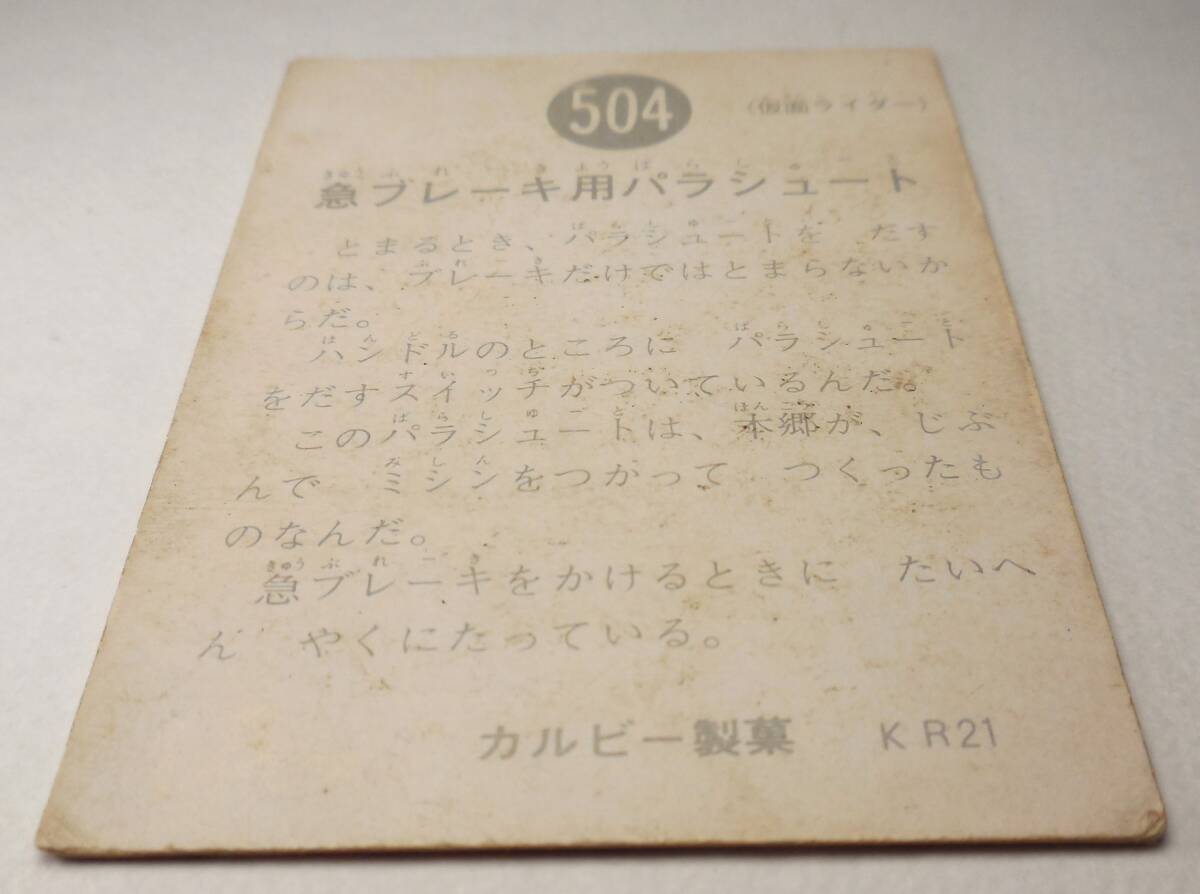 504
(仮面ライダー)
急ブレーキ用パラシュート
とまるとき、パラシュートを だす
のは、ブレーキだけではとまらないか
らだ。
ハンドルのところに パラシュート
をだすスイッチがついているんだ。
このパラシュートは、本郷が、じぶ
んで ミシンをつかって つくったも
のなんだ。
急ブレーキをかけるときに たいへ
ん やくにたっている。
カルビー製菓 KR21